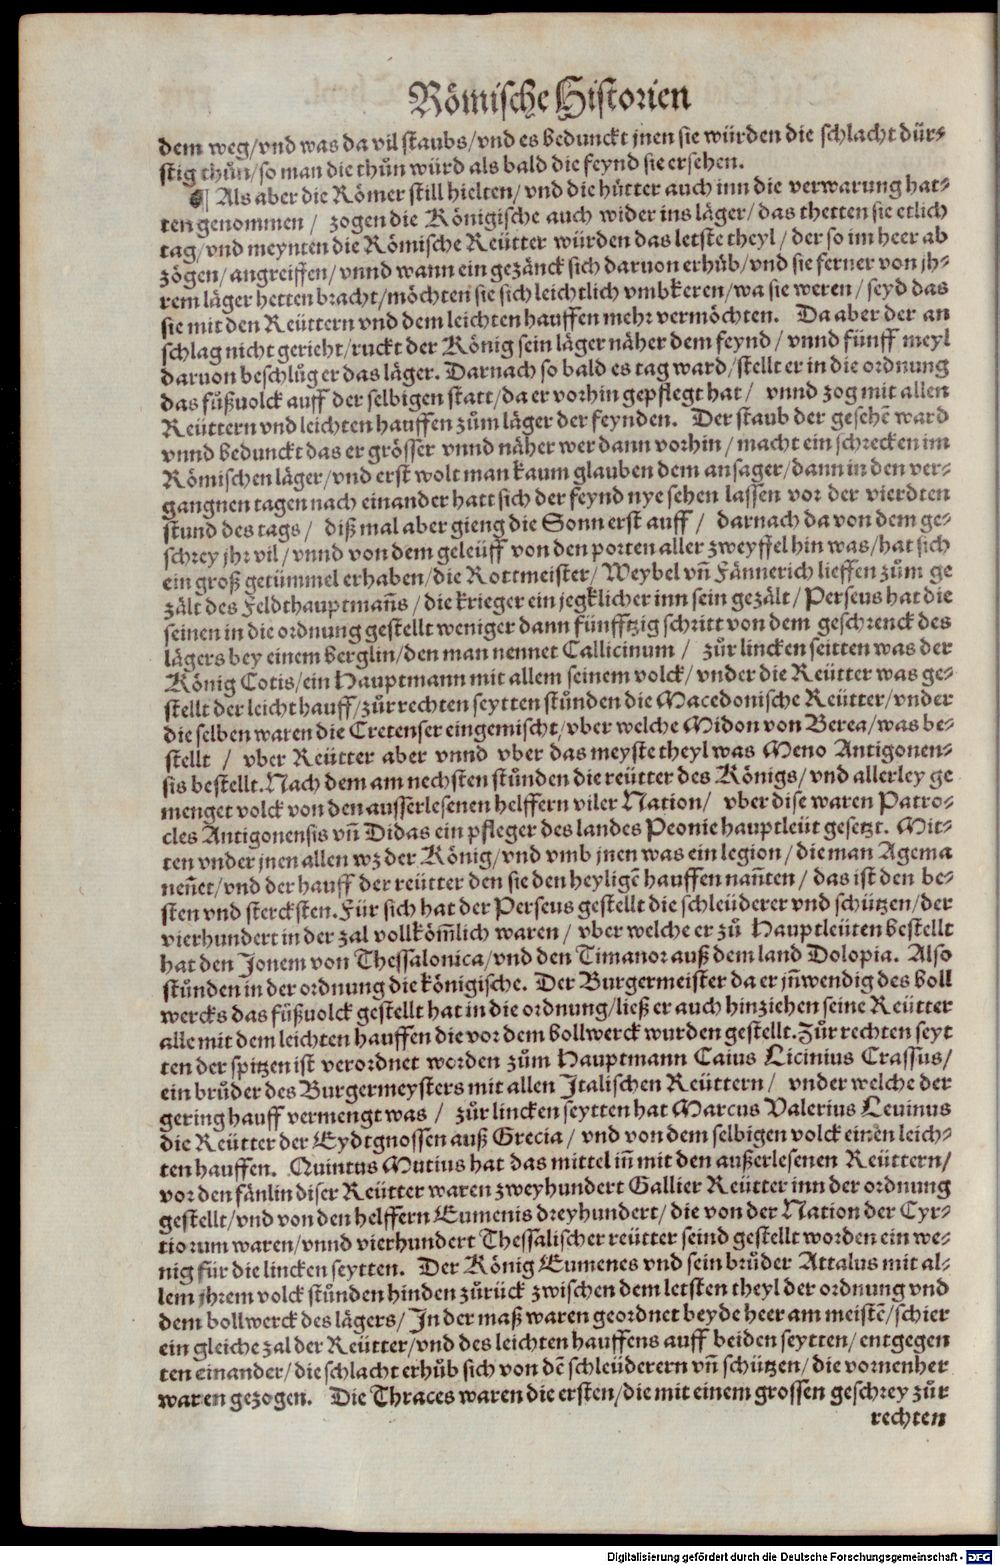 Römische Historien
dem weg/vnd was da vil staubs/vnd es bedunckt jnen sie würden die schlacht dür-
stig thůn/so man die thůn würd als bald die feynd sie ersehen.
¶ Als aber die Römer still hielten/ vnd die hütter auch inn die verwarung hat-
ten genommen/ zogen die Königische auch wider ins läger/das thetten sie etlich
tag/vnd meynten die Römische Reütter würden das letste theyl/der so im heer ab
zögen/angreiffen/vnnd wann ein gezänck sich daruon erhůb/vnd sie ferner von jh-
rem läger hetten bracht/möchten sie sich leichtlich vmbkeren/wa sie weren/seyd das
sie mit den Reüttern vnd dem leichten hauffen mehr vermöchten. Da aber der an
schlag nicht gerieht/ruckt der König sein läger näher dem feynd/ vnnd fünff meyl
daruon beschlůg er das läger. Darnach so bald es tag ward/stellt er in die ordnung
das fůßuolck auff der selbigen statt/da er vorhin gepflegt hat/ vnnd zog mit allen
Reüttern vnd leichten hauffen zům läger der feynden. Der staub der gesehē ward
vnnd bedunckt das er grösser vnnd näher wer dann vorhin/ macht ein schrecken im
Römischen läger/vnd erst wolt man kaum glauben dem ansager/dann in den ver-
gangnen tagen nach einander hatt sich der feynd nye sehen lassen vor der vierdten
stund des tags/ diß mal aber gieng die Sonn erst auff/ darnach da von dem ge-
schrey jhr vil/vnnd von dem geleüff von den porten aller zweyffel hin was/hat sich
ein groß getümmel erhaben/die Rottmeister/Weybel vn̄ Fännerich lieffen zům ge
zält des Feldthauptman̄s/die krieger ein jegklicher inn sein gezält/Perseus hat die
seinen in die ordnung gestellt weniger dann fünfftzig schritt von dem geschrenck des
lägers bey einem berglin/den man nennet Callicinum/ zůr lincken seitten was der
König Cotis/ein Hauptmann mit allem seinem volck/vnder die Reütter was ge-
stellt der leicht hauff/zůr rechten seytten stůnden die Macedonische Reütter/vnder
die selben waren die Cretenser eingemischt/vber welche Midon von Berea/was be-
stellt/ vber Reütter aber vnnd vber das meyste theyl was Meno Antigonen-
sis bestellt. Nach dem am nechsten stůnden die reütter des Königs/vnd allerley ge
menget volck von den ausserlesenen helffern viler Nation/ vber dise waren Patro-
cles Antigonensis vn̄ Didas ein pfleger des landes Peonie hauptleüt gesetzt. Mit-
ten vnder jnen allen wz der König/vnd vmb jnen was ein legion/die man Agema
nen̄et/vnd der hauff der reütter den sie den heyligē hauffen nan̄ten/das ist den be-
sten vnd stercksten. Für sich hat der Perseus gestellt die schleüderer vnd schützen/der
vierhundert in der zal vollköm̄lich waren/ vber welche er zů Hauptleüten bestellt
hat den Jonem von Thessalonica/vnd den Timanor auß dem land Dolopia. Also
stůnden in der ordnung die königische. Der Burgermeister da er jn̄wendig des boll
wercks das fůßuolck gestellt hat in die ordnung/ließ er auch hinziehen seine Reütter
alle mit dem leichten hauffen die vor dem bollwerck wurden gestellt. Zůr rechten seyt
ten der spitzen ist verordnet worden zům Hauptmann Caius Licinius Crassus/
ein brůder des Burgermeysters mit allen Italischen Reüttern/ vnder welche der
gering hauff vermengt was/ zůr lincken seytten hat Marcus Valerius Leuinus
die Reütter der Eydtgnossen auß Grecia/ vnd von dem selbigen volck einen leich-
ten hauffen. Quintus Mutius hat das mittel in̄ mit den außerlesenen Reüttern/
vor den fänlin diser Reütter waren zweyhundert Gallier Reütter inn der ordnung
gestellt/vnd von den helffern Eumenis dreyhundert/die von der Nation der Cyr-
tiorum waren/vnnd vierhundert Thessalischer reütter seind gestellt worden ein we-
nig für die lincken seytten. Der König Eumenes vnd sein brůder Attalus mit al-
lem jhrem volck stůnden hinden zůrück zwischen dem letsten theyl der ordnung vnd
dem bollwerck des lägers/ In der maß waren geordnet beyde heer am meistē/schier
ein gleiche zal der Reütter/vnd des leichten hauffens auff beiden seytten/entgegen
ten einander/die schlacht erhůb sich von dē schleüderern vn̄ schützen/die vornenher
waren gezogen. Die Thraces waren die ersten/die mit einem grossen geschrey zůr
rechten
Digitalisierung gefördert durch die Deutsche Forschungsgemeinschaft - DFG